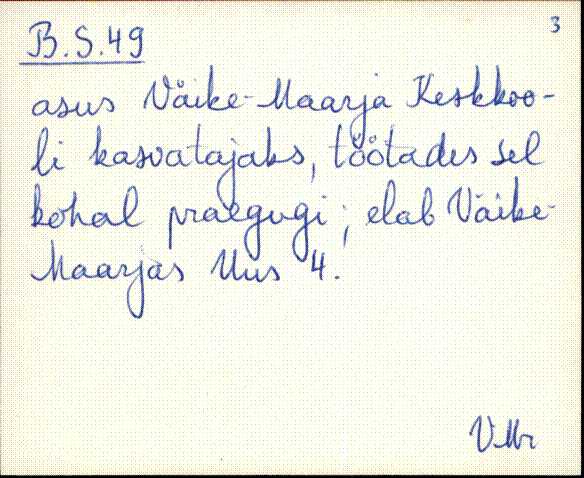 3
B.S.49
asus Väike-Maarja Keskkoo-
li kasvatajaks, töötades sel
kohal praegugi; elab Väike-
Maarjas Uus 4.
VMr